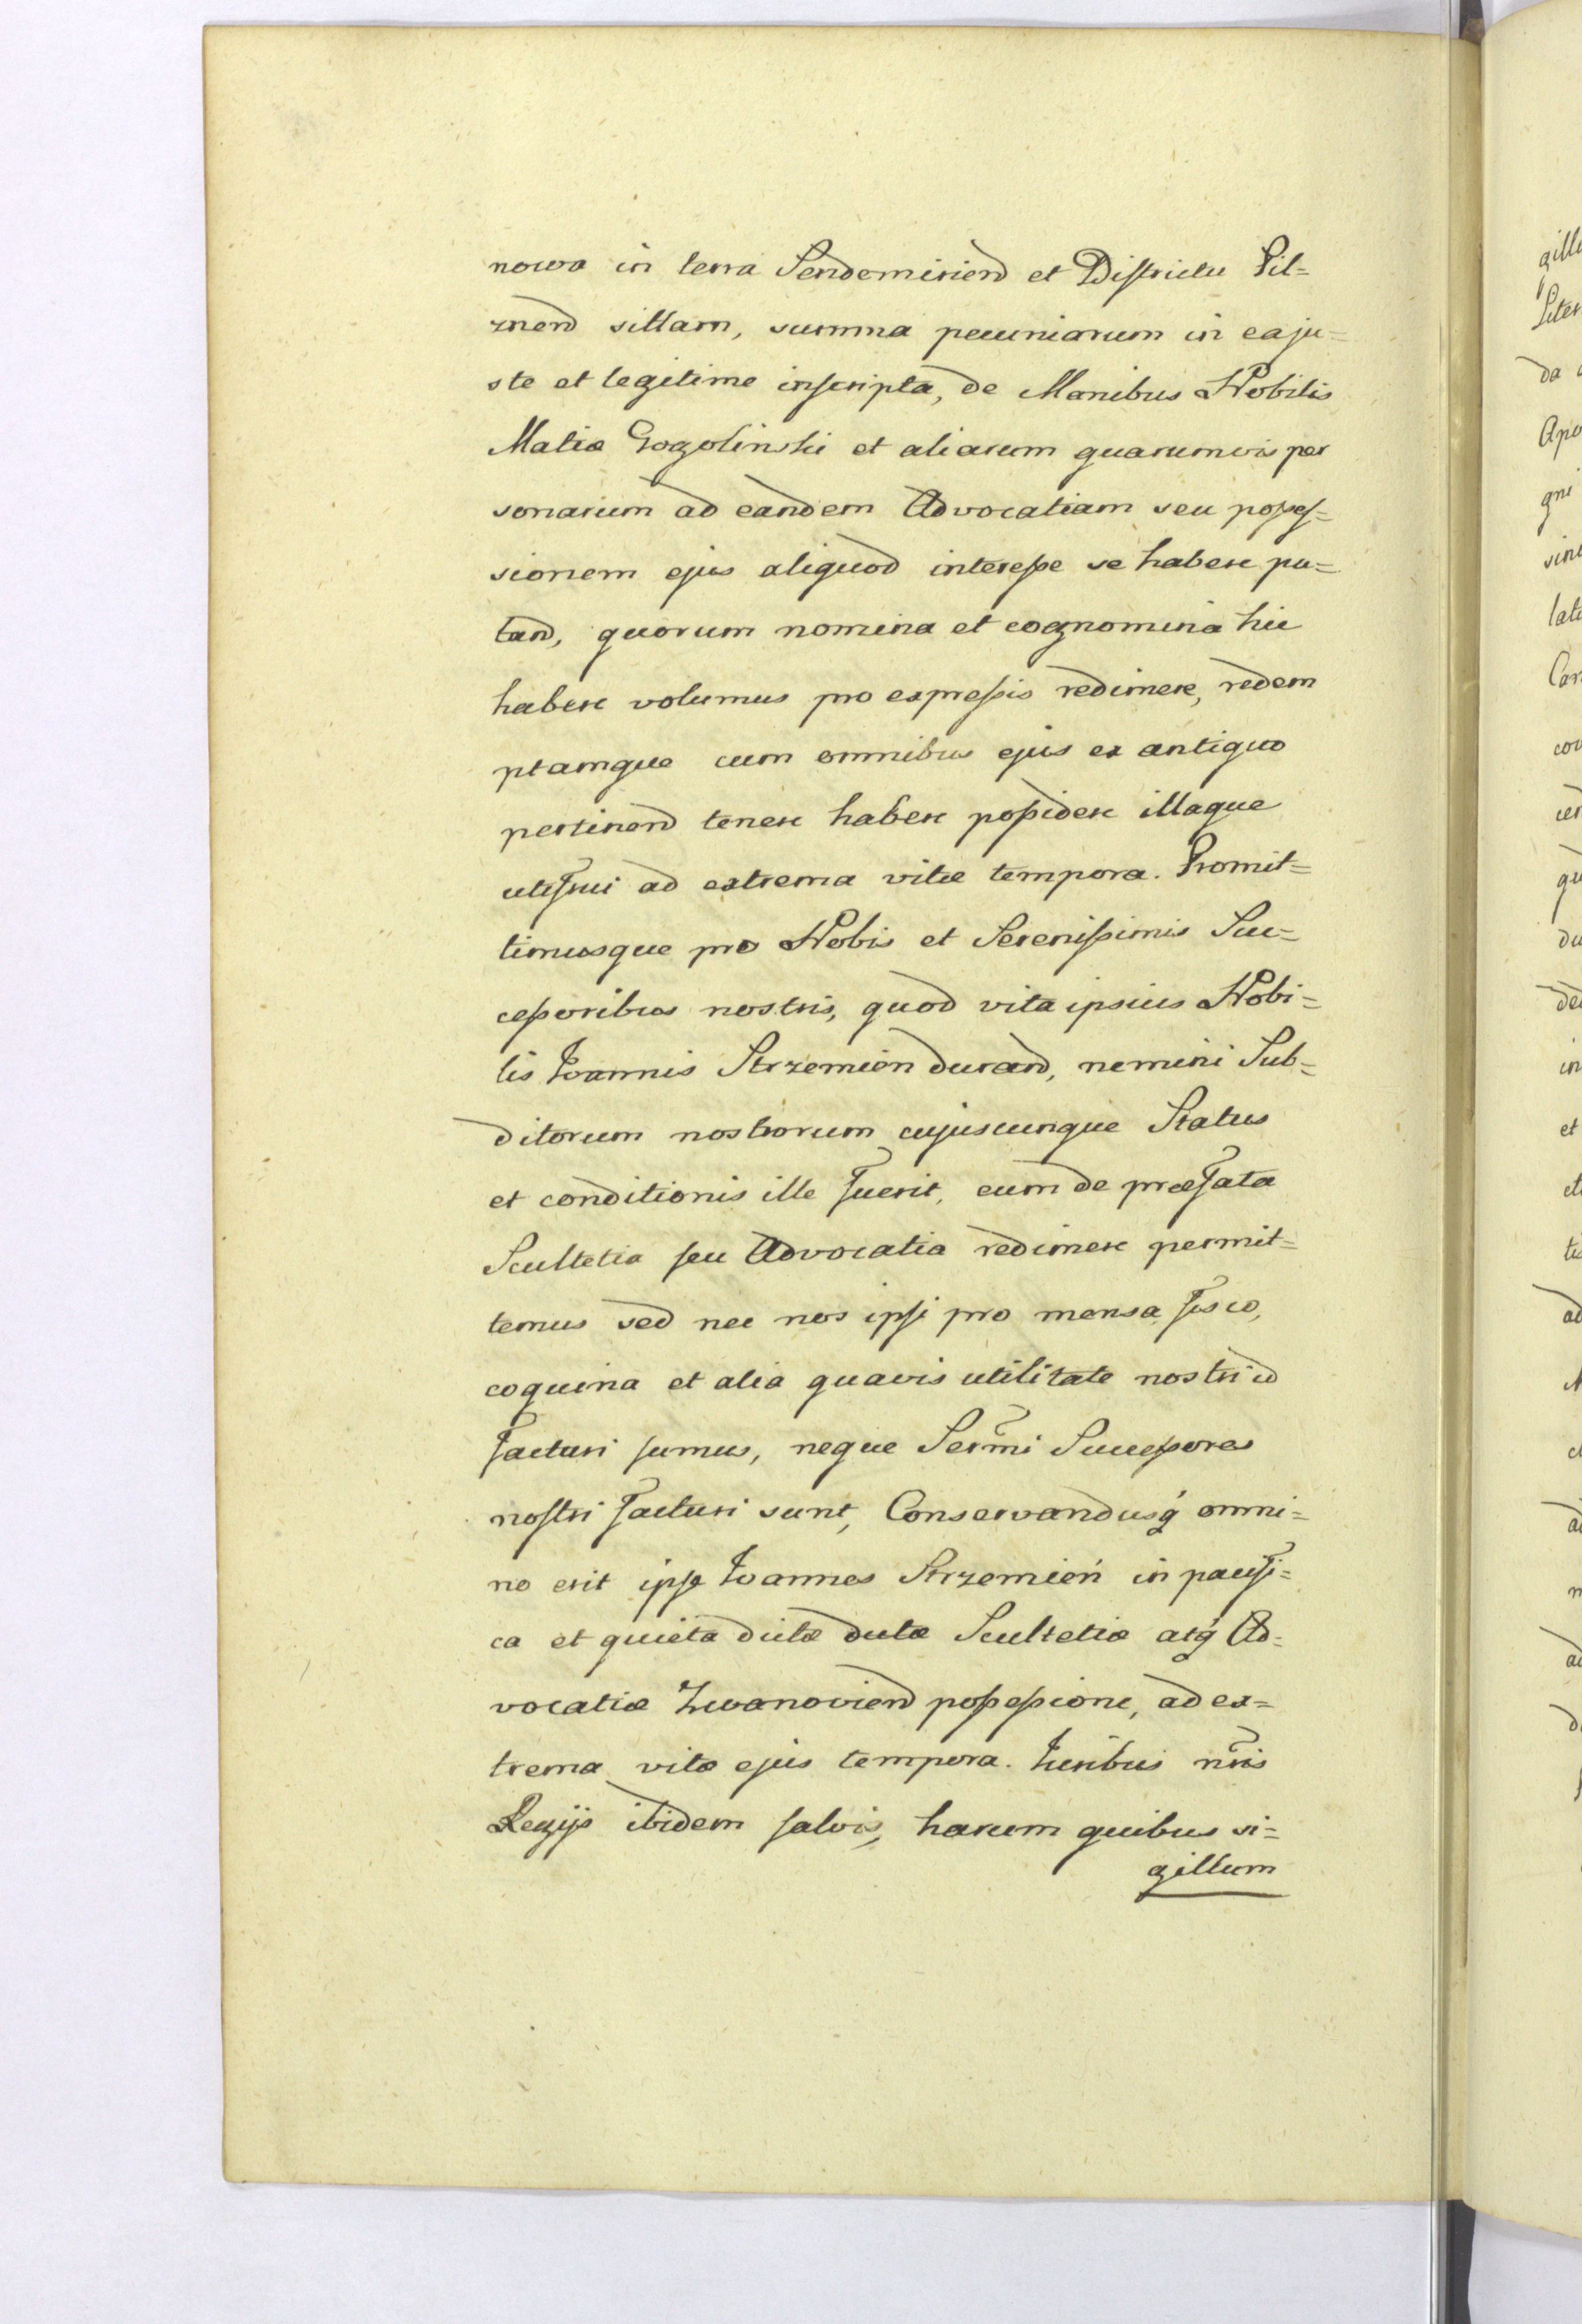 nowa in terra Sendomiriend et Districtu Pil=
znend sittam, summa pecuniarum in ea ju=
ste et legitime inscripta, de Manibus Nobilis
Matiæ Gogolinski et aliarum quarumvis per
sonarum ad eandem Advocatiam seu posses=
sionem ejus aliquod interesse se habere pu=
tand, quorum nomina et cognomina hic
habere volumus pro expressis redimere, redem
ptamque cum omnibus ejus ex antiquo
pertinend tenere habere possidere illaque
utifrui ad extrema vitæ tempora. Promit=
timusque pro Nobis et Serenissimis Suc=
cessoribus nostris, quod vita ipsius Nobi=
lis Joannis Strzemien durand, nemini Sub=
ditorum nostrorum cujuscunque Status
et conditionis ille fuerit, eum de præfata
Scultetia seu Advocatia redimere permit=
temus sed nec nos ipsi pro mensa fisco,
coquina et alia quavis utilitate nostri id
facturi sumus, neque Sermi Successores
nostri facturi sunt, Conservandusq́ omni=
no erit ipse Joannes Strzemień in pacifi=
ca et quieta dictæ dictæ Scultetiæ atq́ Ad=
vocatiæ Zwanoviend possessione, ad ex=
trema vitæ ejus tempora. Juribus nris
Regijs ibidem salvis, harum quibus si=
gillum